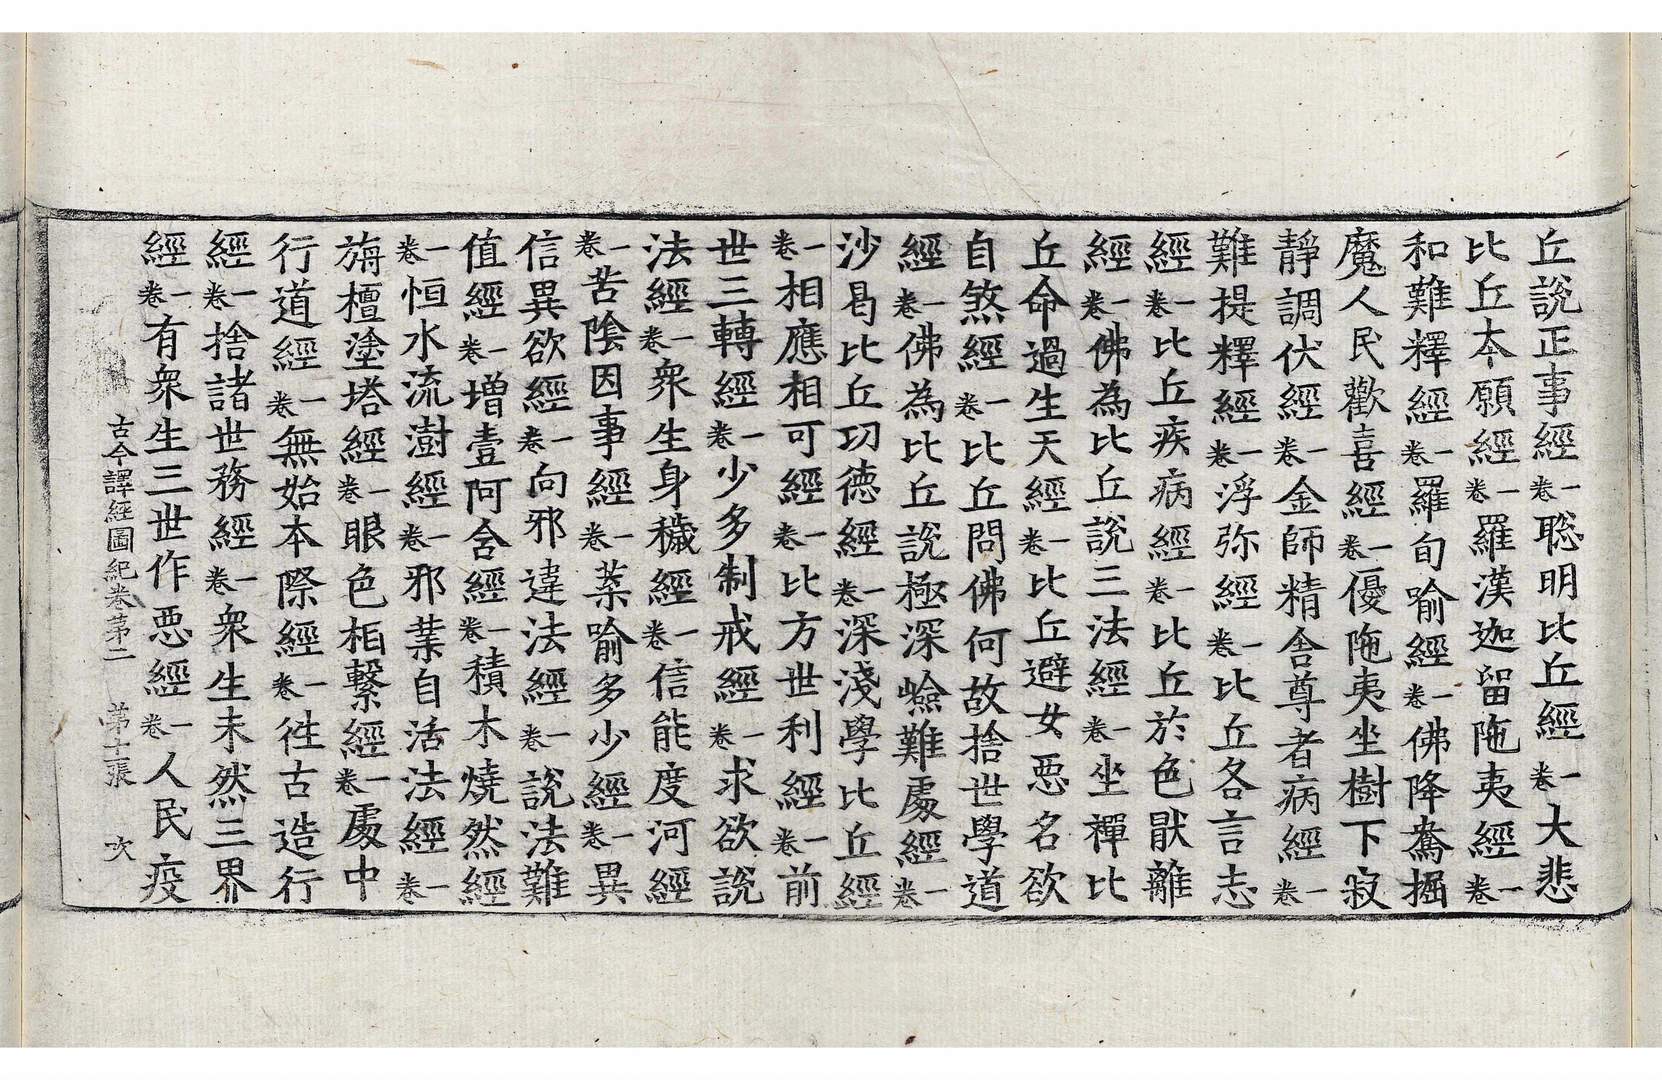 丘說正事經一卷聡明比丘經一卷大悲
比丘夲願經一卷羅漢迦留陁夷經一卷
和難釋經一卷羅旬喻經一卷佛降鴦掘
魔人民歡喜經一卷優陁夷坐樹下寂
靜調伏經一卷金師精舍尊者病經一卷
難提釋經一卷浮弥經一卷比丘各言志
經一卷比丘疾病經一卷比丘於色猒離
經一卷佛為比丘說三法經一卷坐禪比
丘命過生天經一卷比丘避女惡名欲
自煞經一卷比丘問佛何故捨世學道
經一卷佛為比丘說極深嶮難處經一卷
沙曷比丘功德經一卷深淺學比丘經
一卷相應相可經一卷比方世利經一卷前
世三轉經一卷少多制戒經一卷求欲說
法經一卷衆生身穢經一卷信能度河經
一卷苦陰因事經一卷葉喻多少經一卷異
信異欲經一卷向邪違法經一卷說法難
值經一卷増壹阿含經一卷積木燒然經
一卷恒水流澍經一卷邪業自活法經一卷
旃檀塗塔經一卷眼色相繫經一卷處中
行道經一卷無始本際經一卷徃古造行
經一卷捨諸世務經一卷衆生未然三界
經一卷有衆生三世作惡經一卷人民疫
古今譯經圖紀卷第二 第十二張 次